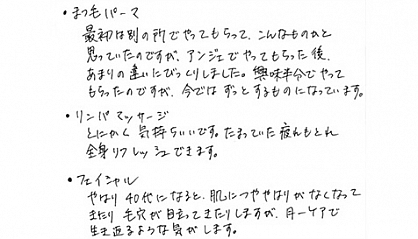 ・まつ毛パーマ
最初は別の所でやってもらって、こんなものかと
思っていたのですが、アンジェでやってもらった後、
あまりの違いにびっくりしました。興味半分でやって
もらったのですが、今ではずっとするものになっています。
・リンパマッサージ
とにかく気持ちいいです。たまっていた疲れもとれ
全身リフレッシュできます。
・フェイシャル
やはり40代になると、肌につややはりがなくなって
きたり毛穴が目立ってきたりしますが、月一ケアで
生き返るような気がします。